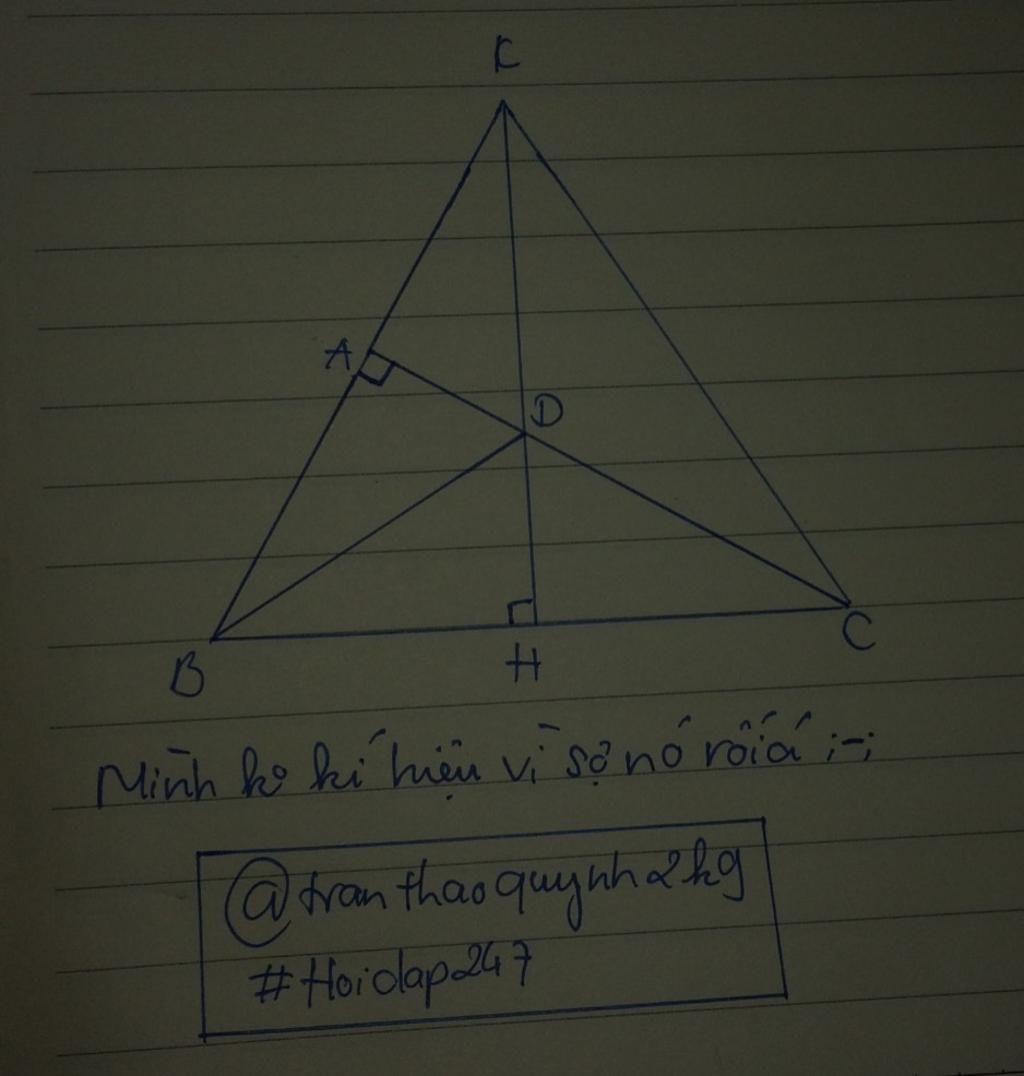 K
A
D
B
H
C
Mình ko kí hiệu vì sợ nó rối á ;-;
@tranthaoquynh2kg
#Hoidap247